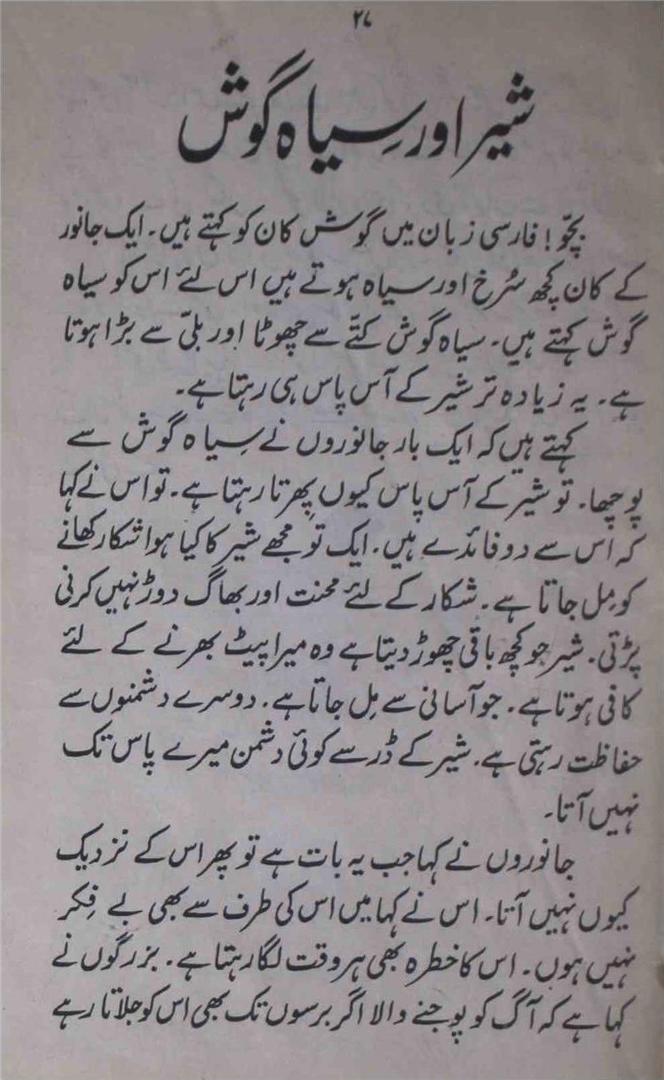 ۲۷
شیر اور سیاہ گوش
بچّو! فارسی زبان میں گوش کان کو کہتے ہیں۔ ایک جانور
کے کان کچھ سُرخ اور سیاہ ہوتے ہیں اس لئے اس کو سیاہ
گوش کہتے ہیں۔ سیاہ گوش کتّے سے چھوٹا اور بلّی سے بڑا ہوتا
ہے۔ یہ زیادہ تر شیر کے آس پاس ہی رہتا ہے۔
کہتے ہیں کہ ایک بار جانوروں نے سیاہ گوش سے
پوچھا۔ تو شیر کے آس پاس کیوں پھرتا رہتا ہے۔ تو اس نے کہا
کہ اس سے دو فائدے ہیں۔ ایک تو مجھے شیر کا کیا ہوا شکار کھانے
کو مِل جاتا ہے۔ شکار کے لئے محنت اور بھاگ دوڑ نہیں کرنی
پڑتی۔ شیر جو کچھ باقی چھوڑ دیتا ہے وہ میرا پیٹ بھرنے کے لئے
کافی ہوتا ہے۔ جو آسانی سے مِل جاتا ہے۔ دوسرے دشمنوں سے
حفاظت رہتی ہے۔ شیر کے ڈر سے کوئی دشمن میرے پاس تک
نہیں آتا۔
جانوروں نے کہا جب یہ بات ہے تو پھر اس کے نزدیک
کیوں نہیں آتا۔ اس نے کہا میں اس کی طرف سے بھی بے فِکر
نہیں ہوں۔ اس کا خطرہ بھی ہر وقت لگا رہتا ہے۔ بزرگوں نے
کہا ہے کہ آگ کو پوجنے والا اگر برسوں تک بھی اس کو جلاتا رہے